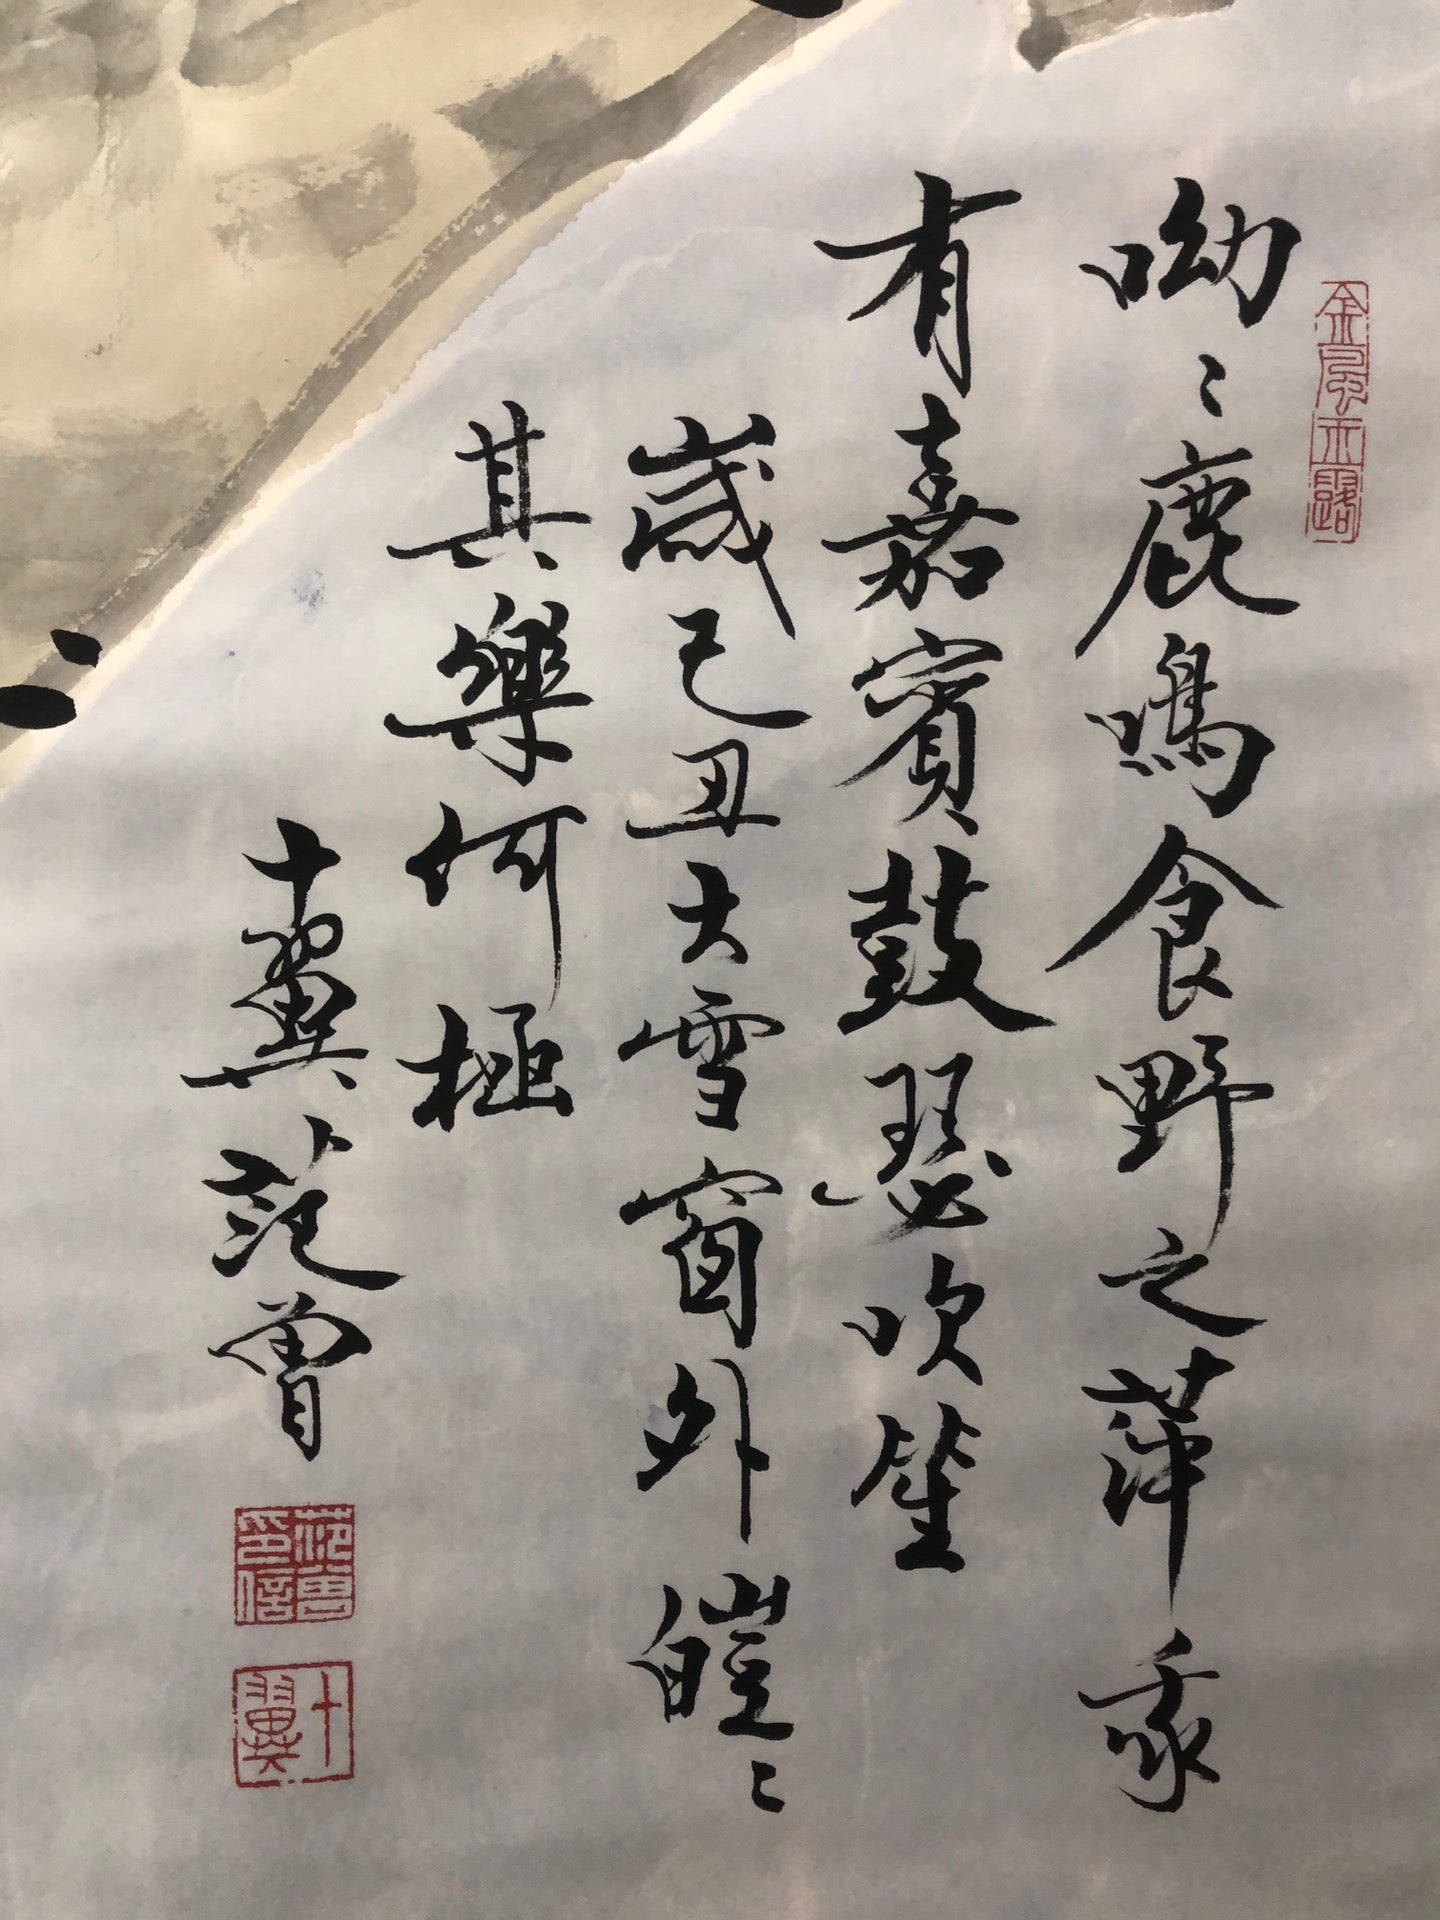 呦〻鹿鳴食野之苹我
有嘉賓鼓瑟吹笙
歲己丑大雪窗外皚〻
其樂何極
十翼范曾
金風玉露
范曾印信
十翼